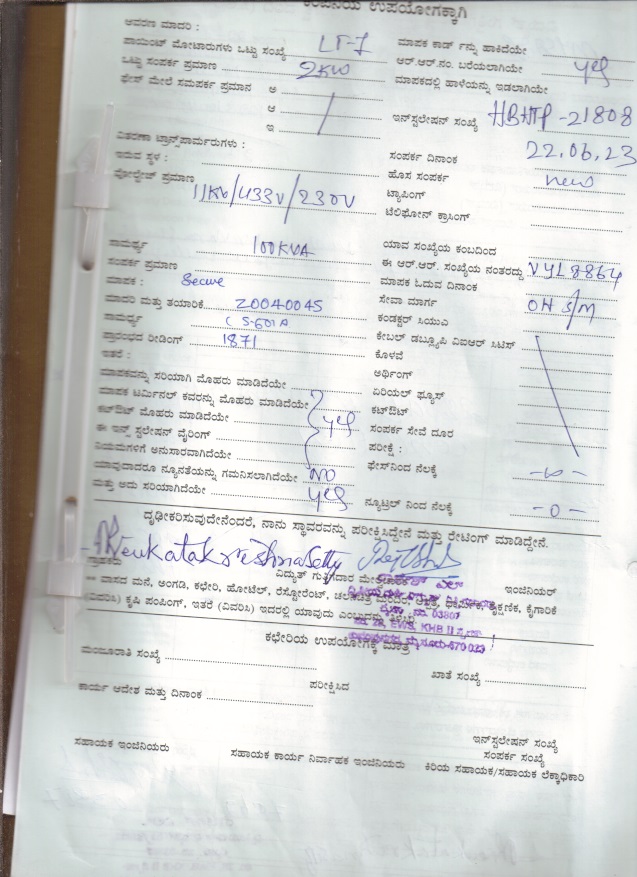 ಕಂಪನಿಯ ಉಪಯೋಗಕ್ಕಾಗಿ
ಆವರಣ ಮಾದರಿ :
ಪಾಯಿಂಟ್ ಮೋಟಾರುಗಳು ಒಟ್ಟು ಸಂಖ್ಯೆ LT-1 ಮಾಪಕ ಕಾರ್ಡ್ ನ್ನು ಹಾಕಿದೆಯೇ
ಒಟ್ಟು ಸಂಪರ್ಕ ಪ್ರಮಾಣ 2KW ಆರ್.ಆರ್.ನಂ. ಬರೆಯಲಾಗಿಯೇ yes
ಫೇಸ್ ಮೇಲೆ ಸಮಪರ್ಕ ಪ್ರಮಾನ ಅ ಮಾಪಕದಲ್ಲಿ ಹಾಳೆಯನ್ನು ಇಡಲಾಗಿಯೇ
ಆ
ಇ ಇನ್ಸ್ಟಲೇಷನ್ ಸಂಖ್ಯೆ -21808
ವಿತರಣಾ ಟ್ರಾನ್ಸ್‌ಪಾರ್ಮರುಗಳು :
ಇರುವ ಸ್ಥಳ : ಸಂಪರ್ಕ ದಿನಾಂಕ 22.06.23
ವೋಲ್ಟೇಜ್ ಪ್ರಮಾಣ 11KV/433V/230V ಹೊಸ ಸಂಪರ್ಕ new
ಟ್ಯಾಪಿಂಗ್
ಟೆಲಿಫೋನ್ ಕ್ರಾಸಿಂಗ್
ಸಾಮರ್ಥ್ಯ 100KVA ಯಾವ ಸಂಖ್ಯೆಯ ಕಂಬದಿಂದ
ಸಂಪರ್ಕ ಪ್ರಮಾಣ ಈ ಆರ್.ಆರ್. ಸಂಖ್ಯೆಯ ನಂತರದ್ದು VYL8864
ಮಾಪಕ : Secure ಮಾಪಕ ಓದುವ ದಿನಾಂಕ
ಮಾದರಿ ಮತ್ತು ತಯಾರಿಕೆ 20040045 ಸೇವಾ ಮಾರ್ಗ OH S/M
ಸಾಮರ್ಥ್ಯ ಕಂಡಕ್ಟರ್ ಸಿಯುಎ
ಪ್ರಾರಂಭದ ರೀಡಿಂಗ್ 1871 ಕೇಬಲ್ ಡಬ್ಲ್ಯೂಪಿ ವಿಐಆರ್ ಸಿಟಿಸ್
ಇತರೆ : ಕೊಳವೆ
ಮಾಪಕವನ್ನು ಸರಿಯಾಗಿ ಮೊಹರು ಮಾಡಿದೆಯೇ ಅರ್ಥಿಂಗ್
ಮಾಪಕ ಟರ್ಮಿನಲ್ ಕವರನ್ನು ಮೊಹರು ಮಾಡಿದೆಯೇ ಏರಿಯಲ್ ಫ್ಯೂಸ್
ಕಟ್‌ಔಟ್ ಮೊಹರು ಮಾಡಿದೆಯೇ yes ಕಟ್‌ಔಟ್
ಈ ಇನ್ಸ್ ಸ್ಟಲೇಷನ್ ವೈರಿಂಗ್ ಸಂಪರ್ಕ ಸೇವೆ ದೂರ
ನಿಯಮಗಳಿಗೆ ಅನುಸಾರವಾಗಿದೆಯೇ ಪರೀಕ್ಷೆ :
ಯಾವುದಾದರೂ ನ್ಯೂನತೆಯನ್ನು ಗಮನಿಸಲಾಗಿದೆಯೇ NO ಫೇಸ್‌ನಿಂದ ನೆಲಕ್ಕೆ
ಮತ್ತು ಅದು ಸರಿಯಾಗಿದೆಯೇ yes ನ್ಯೂಟ್ರಲ್ ನಿಂದ ನೆಲಕ್ಕೆ -0-
ದೃಢೀಕರಿಸುವುದೇನೆಂದರೆ, ನಾನು ಸ್ಥಾವರವನ್ನು ಪರೀಕ್ಷಿಸಿದ್ದೇನೆ ಮತ್ತು ರೇಟಿಂಗ್ ಮಾಡಿದ್ದೇನೆ.
Venkatakrishna Setty
ಗ್ರಾಹಕರು ವಿದ್ಯುತ್ ಗುತ್ತಿಗೆದಾರ ಇಂಜಿನಿಯರ್
** ವಾಸದ ಮನೆ, ಅಂಗಡಿ, ಕಛೇರಿ, ಹೋಟೆಲ್, ರೆಸ್ಟೋರೆಂಟ್, ಶೈಕ್ಷಣಿಕ, ಕೈಗಾರಿಕೆ
(ವಿವರಿಸಿ) ಕೃಷಿ ಪಂಪಿಂಗ್, ಇತರೆ (ವಿವರಿಸಿ) ಇದರಲ್ಲಿ ಯಾವುದು ಎಂಬುದನ್ನು
EWS, KHB II
570023
ಕಛೇರಿಯ ಉಪಯೋಗಕ್ಕೆ ಮಾತ್ರ
ಮಂಜೂರಾತಿ ಸಂಖ್ಯೆ ಖಾತೆ ಸಂಖ್ಯೆ
ಪರೀಕ್ಷಿಸಿದ
ಕಾರ್ಯ ಆದೇಶ ಮತ್ತು ದಿನಾಂಕ
ಇನ್‌ಸ್ಟಲೇಷನ್ ಸಂಖ್ಯೆ
ಸಂಪರ್ಕ ಸಂಖ್ಯೆ
ಸಹಾಯಕ ಇಂಜಿನಿಯರು ಸಹಾಯಕ ಕಾರ್ಯ ನಿರ್ವಾಹಕ ಇಂಜಿನಿಯರು ಕಿರಿಯ ಸಹಾಯಕ/ಸಹಾಯಕ ಲೆಕ್ಕಾಧಿಕಾರಿ